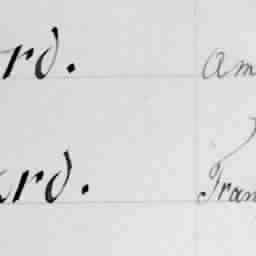 rd. am
ard. Fran